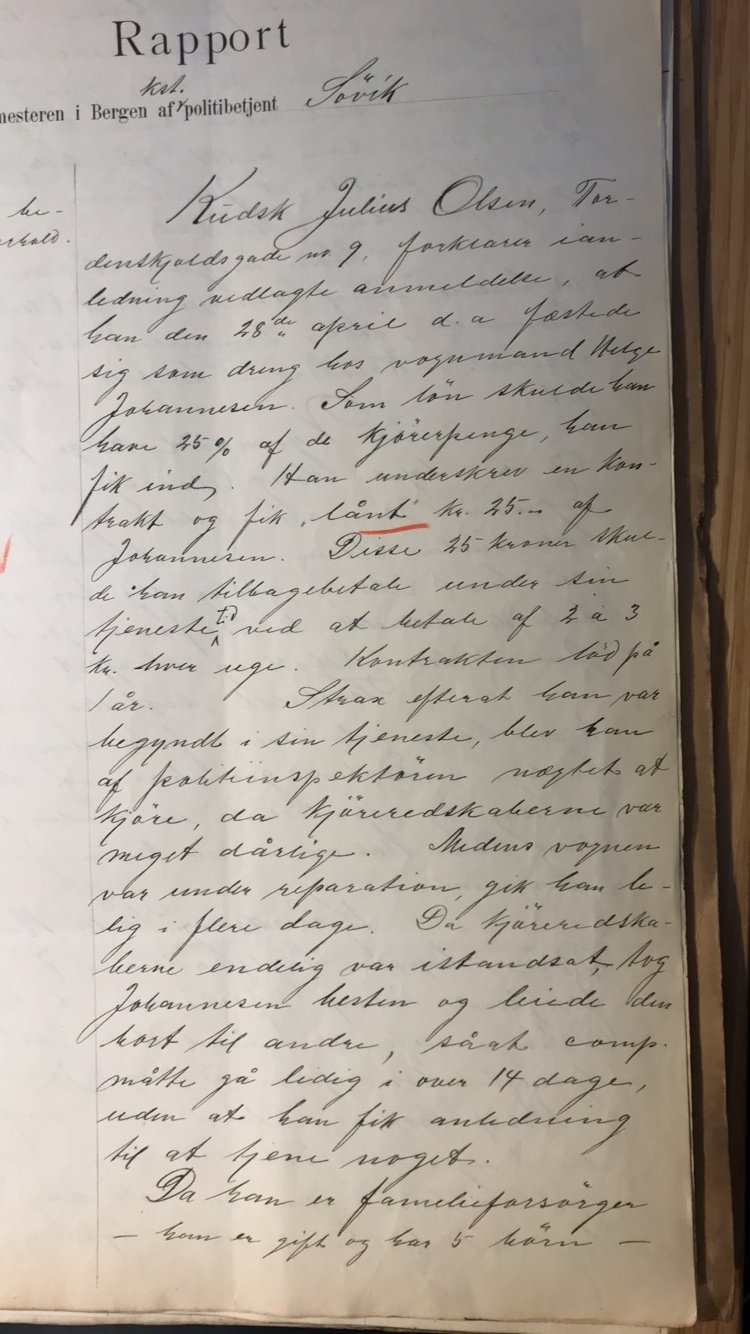 Rapport
kst.
mesteren i Bergen af politibetjent Sövik
be-
erhold.
Kudsk Julius Olsen, Tor-
denskjoldsgade no 9, forklarer i an-
ledning vedlagte anmeldelse, at
han den 28de april d. a fæstede
sig som dreng hos vognmand Helge
Johannesen. Som lön skulde han
have 25% af de kjörerpenge, han
fik ind. Han underskrev en kon-
trakt og fik "lånt" kr. 25.- af
Johannesen. Disse 25 kroner skul-
de han tilbagebetale under sin
tjenestetid ved at betale af 2 a 3
kr. hver uge. Kontrakten löd på
1 år. Strax efterat han var
begyndt i sin tjeneste, blev han
af politiinspektören nægtet at
kjöre, da kjöreredskaberne var
meget dårlige. Medens vognen
var under reparation, gik han le-
dig i flere dage. Da kjöreredska-
berne endelig var istandsat, tog
Johannesen hesten og leiede den
bort til andre, såat comp.
måtte gå ledig i over 14 dage,
uden at han fik anledning
til at tjene noget.
Da han er famelieforsörger
— han er gift og har 5 börn —